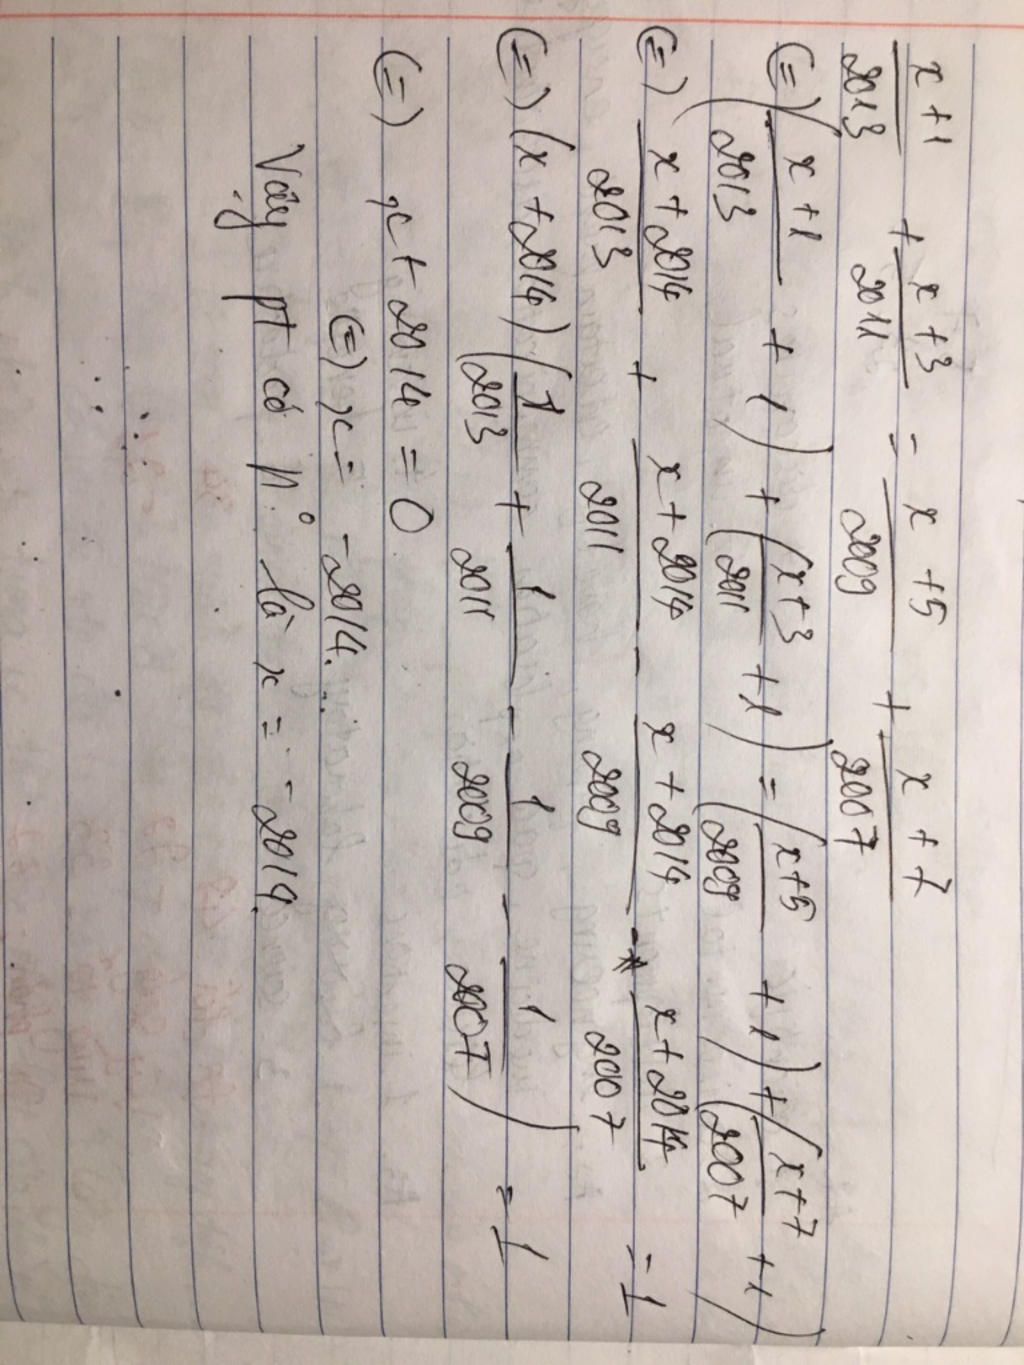 x+1/2013 + x+3/2011 = x+5/2009 + x+7/2007
(=) (x+1/2013 + 1) + (x+3/2011 + 1) = (x+5/2009 + 1) + (x+7/2007 + 1)
(=) x+2014/2013 + x+2014/2011 - x+2014/2009 - x+2014/2007 = 1
(=) (x+2014) (1/2013 + 1/2011 - 1/2009 - 1/2007) = 1
(=) x+2014 = 0
(=) x = -2014.
Vậy pt có no là x = -2014.